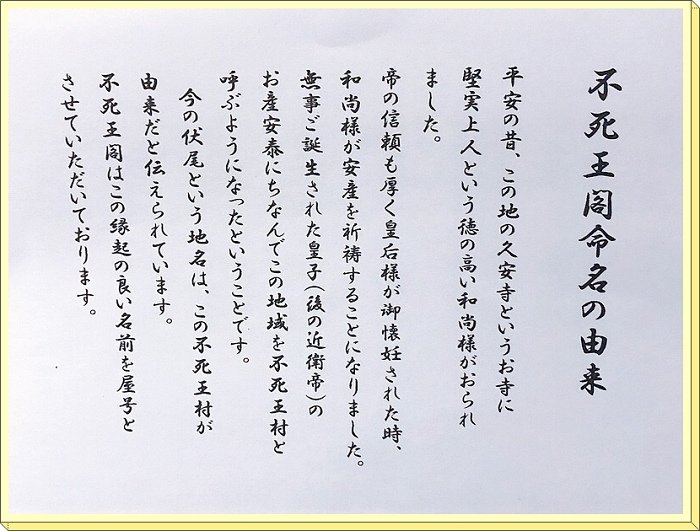 不死王閣命名の由来
平安の昔、この地の久安寺というお寺に
堅実上人という徳の高い和尚様がおられ
ました。
帝の信頼も厚く皇后様が御懐妊された時、
和尚様が安産を祈祷することになりました。
無事ご誕生された皇子(後の近衛帝)の
お産安泰にちなんでこの地域を不死王村と
呼ぶようになったということです。
今の伏尾という地名は、この不死王村が
由来だと伝えられています。
不死王閣はこの縁起の良い名前を屋号と
させていただいております。